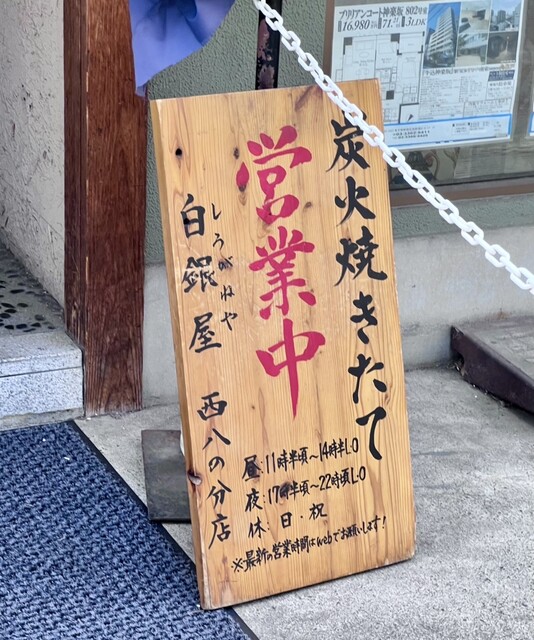 炭火焼きたて
営業中
しろがねや
白銀屋 西八の分店
昼:11時半頃～14時半L.O
夜:17時半頃～22時頃L.O
休:日・祝
※最新の営業時間はwebでお願いします!
ブリリアンコート神楽坂 802号室
16,980万円 71.21㎡ 3LDK